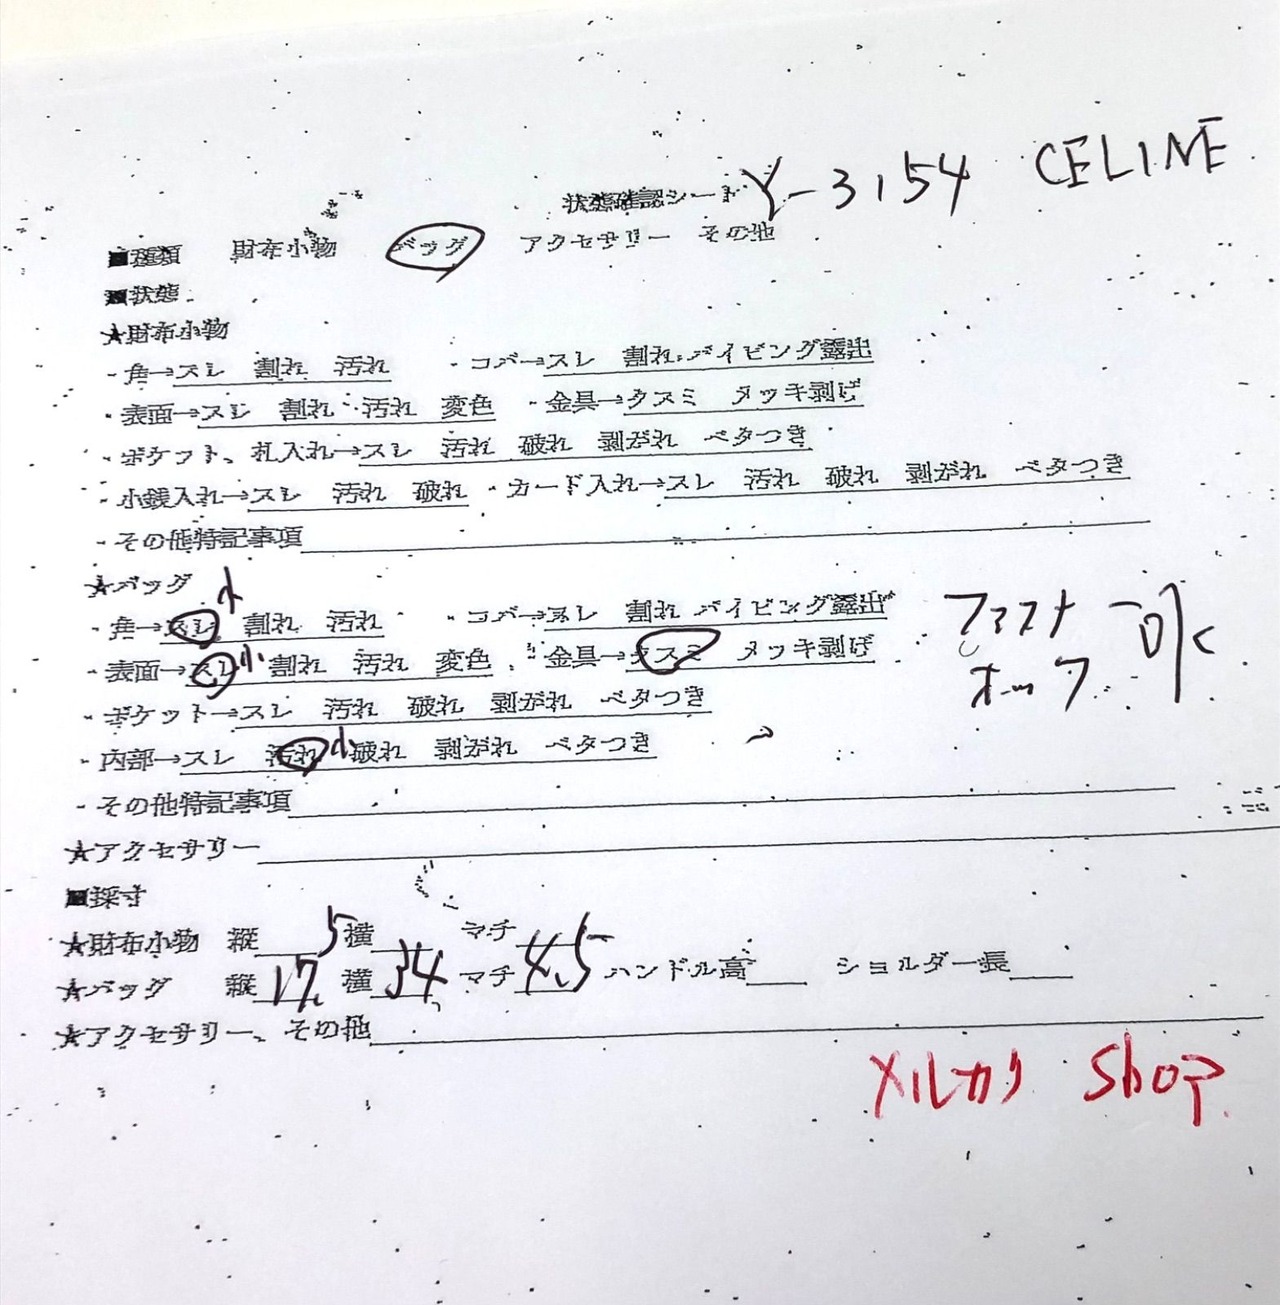 状態確認シート Y-3154 CELINE
■種類 財布小物 バッグ アクセサリー その他
■状態
★財布小物
・角→スレ 割れ 汚れ ・コバ→スレ 割れ パイピング露出
・表面→スレ 割れ 汚れ 変色 ・金具→クスミ メッキ剥げ
・ポケット、札入れ→スレ 汚れ 破れ 剥がれ ベタつき
・小銭入れ→スレ 汚れ 破れ ・カード入れ→スレ 汚れ 破れ 剥がれ ベタつき
・その他特記事項
★バッグ
・角→スレ小 割れ 汚れ ・コバ→スレ 割れ パイピング露出
・表面→スレ小 割れ 汚れ 変色 ・金具→クスミ メッキ剥げ
ファスナー
・ポケット→スレ 汚れ 破れ 剥がれ ベタつき
・内部→スレ 汚れ小 破れ 剥がれ ベタつき
・その他特記事項
★アクセサリー
■採寸
★財布小物 縦 横 マチ
★バッグ 縦17.5 横34 マチ4.5 ハンドル高 ショルダー長
★アクセサリー、その他
メルカリ Shop